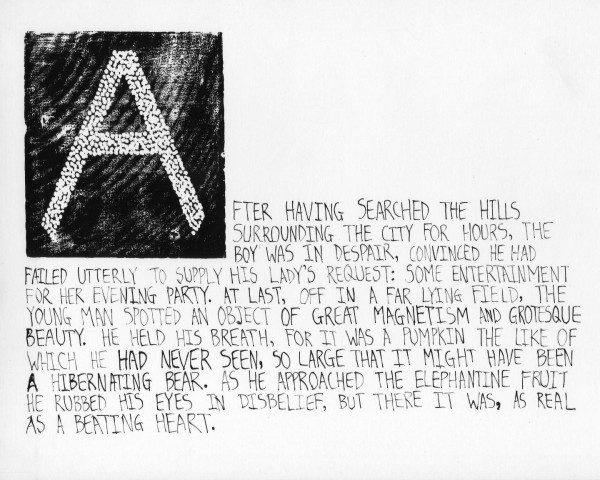 A
FTER HAVING SEARCHED THE HILLS
SURROUNDING THE CITY FOR HOURS, THE
BOY WAS IN DESPAIR, CONVINCED HE HAD
FAILED UTTERLY TO SUPPLY HIS LADY'S REQUEST: SOME ENTERTAINMENT
FOR HER EVENING PARTY. AT LAST, OFF IN A FAR LYING FIELD, THE
YOUNG MAN SPOTTED AN OBJECT OF GREAT MAGNETISM AND GROTESQUE
BEAUTY. HE HELD HIS BREATH, FOR IT WAS A PUMPKIN THE LIKE OF
WHICH HE HAD NEVER SEEN, SO LARGE THAT IT MIGHT HAVE BEEN
A HIBERNATING BEAR. AS HE APPROACHED THE ELEPHANTINE FRUIT
HE RUBBED HIS EYES IN DISBELIEF, BUT THERE IT WAS, AS REAL
AS A BEATING HEART.